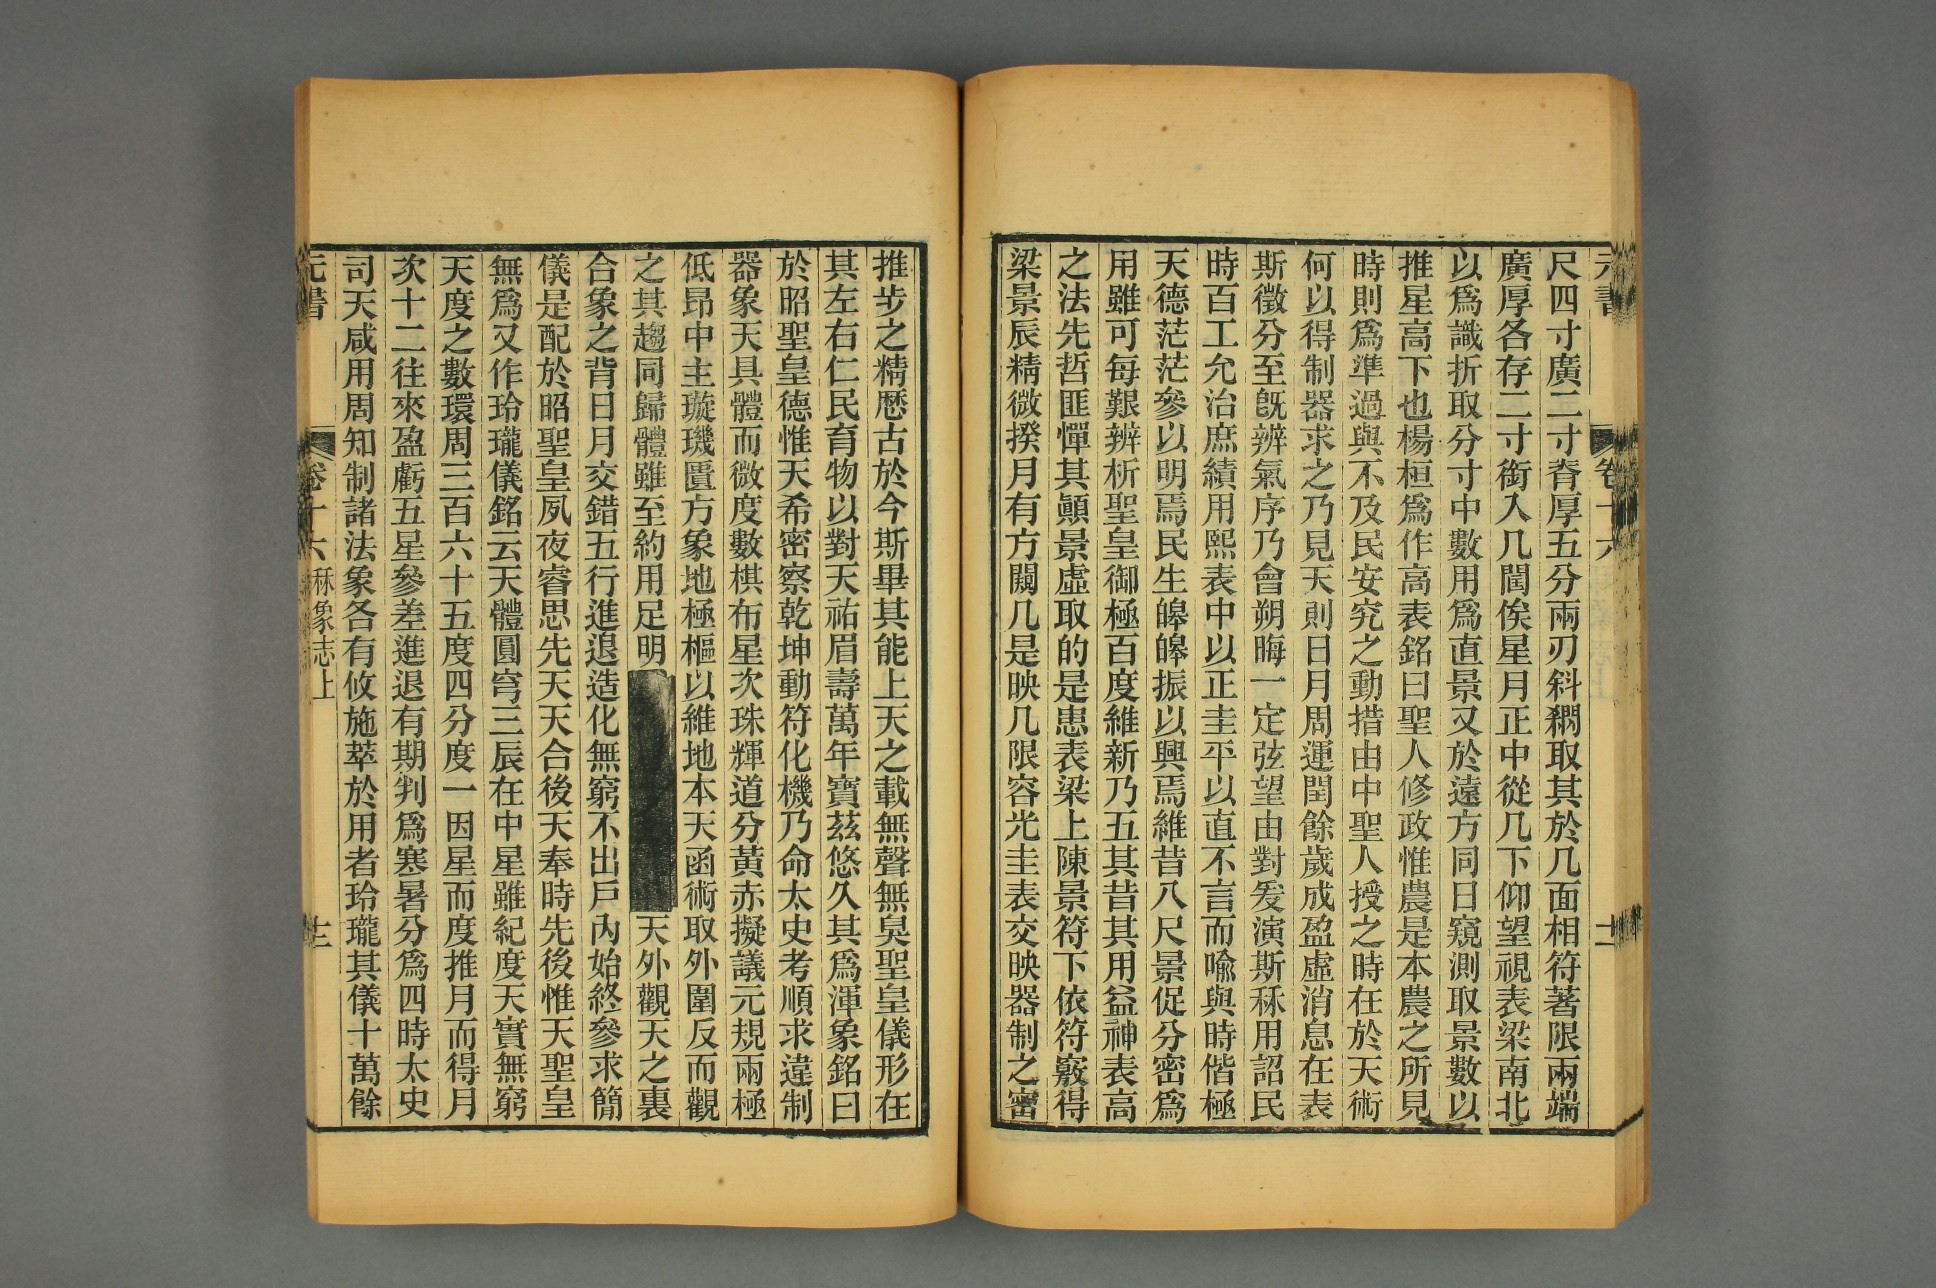 元書
卷十六
十二
尺四寸廣二寸脊厚五分兩刃斜閷取其於几面相符著限兩端
廣厚各存二寸銜入几閨俟星月正中從几下仰望視表梁南北
以爲識折取分寸中數用爲直景又於遠方同日窺測取景數以
推星高下也楊桓爲作高表銘曰聖人修政惟農是本農之所見
時則爲準過與不及民安究之動措由中聖人授之時在於天術
何以得制器求之乃見天則日月周運閏餘歲成盈虛消息在表
斯徵分至旣辨氣序乃會朔晦一定弦望由對爰演斯秝用詔民
時百工允治庶績用熙表中以正圭平以直不言而喩與時偕極
天德茫茫參以明焉民生皞皞振以興焉維昔八尺景促分密爲
用雖可每艱辨析聖皇御極百度維新乃五其昔其用益神表高
之法先哲匪憚其顚景虛取的是患表梁上陳景符下依符竅得
梁景辰精微揆月有方闚几是映几限容光圭表交映器制之密
推步之精歷古於今斯畢其能上天之載無聲無臭聖皇儀形在
其左右仁民育物以對天祐眉壽萬年寶茲悠久其爲渾象銘曰
於昭聖皇德惟天希密察乾坤動符化機乃命太史考順求違制
器象天具體而微度數棋布星次珠輝道分黃赤擬議元規兩極
低昂中主璇璣匱方象地極樞以維地本天函術取外圍反而觀
之其趨同歸體雖至約用足明天外觀天之裏
合象之背日月交錯五行進退造化無窮不出戶內始終參求簡
儀是配於昭聖皇夙夜睿思先天天合後天奉時先後惟天聖皇
無爲又作玲瓏儀銘云天體圓穹三辰在中星雖紀度天實無窮
天度之數環周三百六十五度四分度一因星而度推月而得月
次十二往來盈虧五星參差進退有期判爲寒暑分爲四時太史
司天咸用周知制諸法象各有攸施萃於用者玲瓏其儀十萬餘
元書
卷十六秝象志上
十三